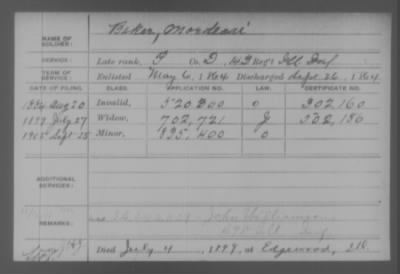 Baker, Mordecai
NAME OF SOLDIER:
SERVICE: Late rank, P Co. D, 143 Reg't Ill Inf
TERM OF SERVICE: Enlisted May 6, 1864 Discharged Sept. 26, 1864
DATE OF FILING. CLASS. APPLICATION NO. LAW. CERTIFICATE NO.
1884 Aug 20 Invalid, 520,200 0 302,160
1899 July 27 Widow, 702,721 J 502,180
1905 Sept 25 Minor, 835,400 0
ADDITIONAL SERVICES:
John Williamson
REMARKS:
Died July 4, 1899, at Edgewood, Ill.